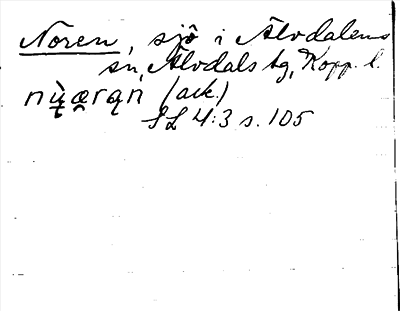 Noren, sjö i Älvdalens
sn, Älvdals tg, Kopp. l.
nù̯æ̯rąn (ack.)
SL 4:3 s. 105